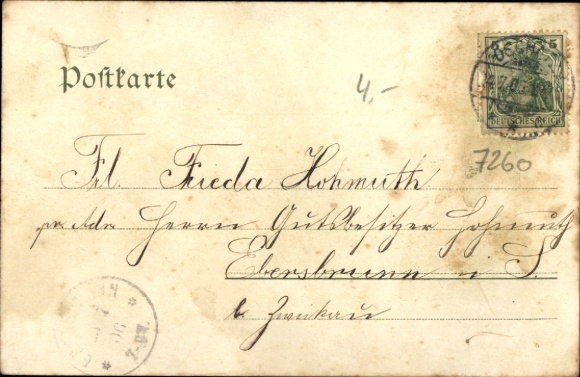 Postkarte
5
DEUTSCHES REICH
4,-
7260
Frl. Frieda Hohmuth
pr. Adr. Herrn Gutsbesitzer Hohmuth
Ebersbrunn i. S.
b. Zwickau